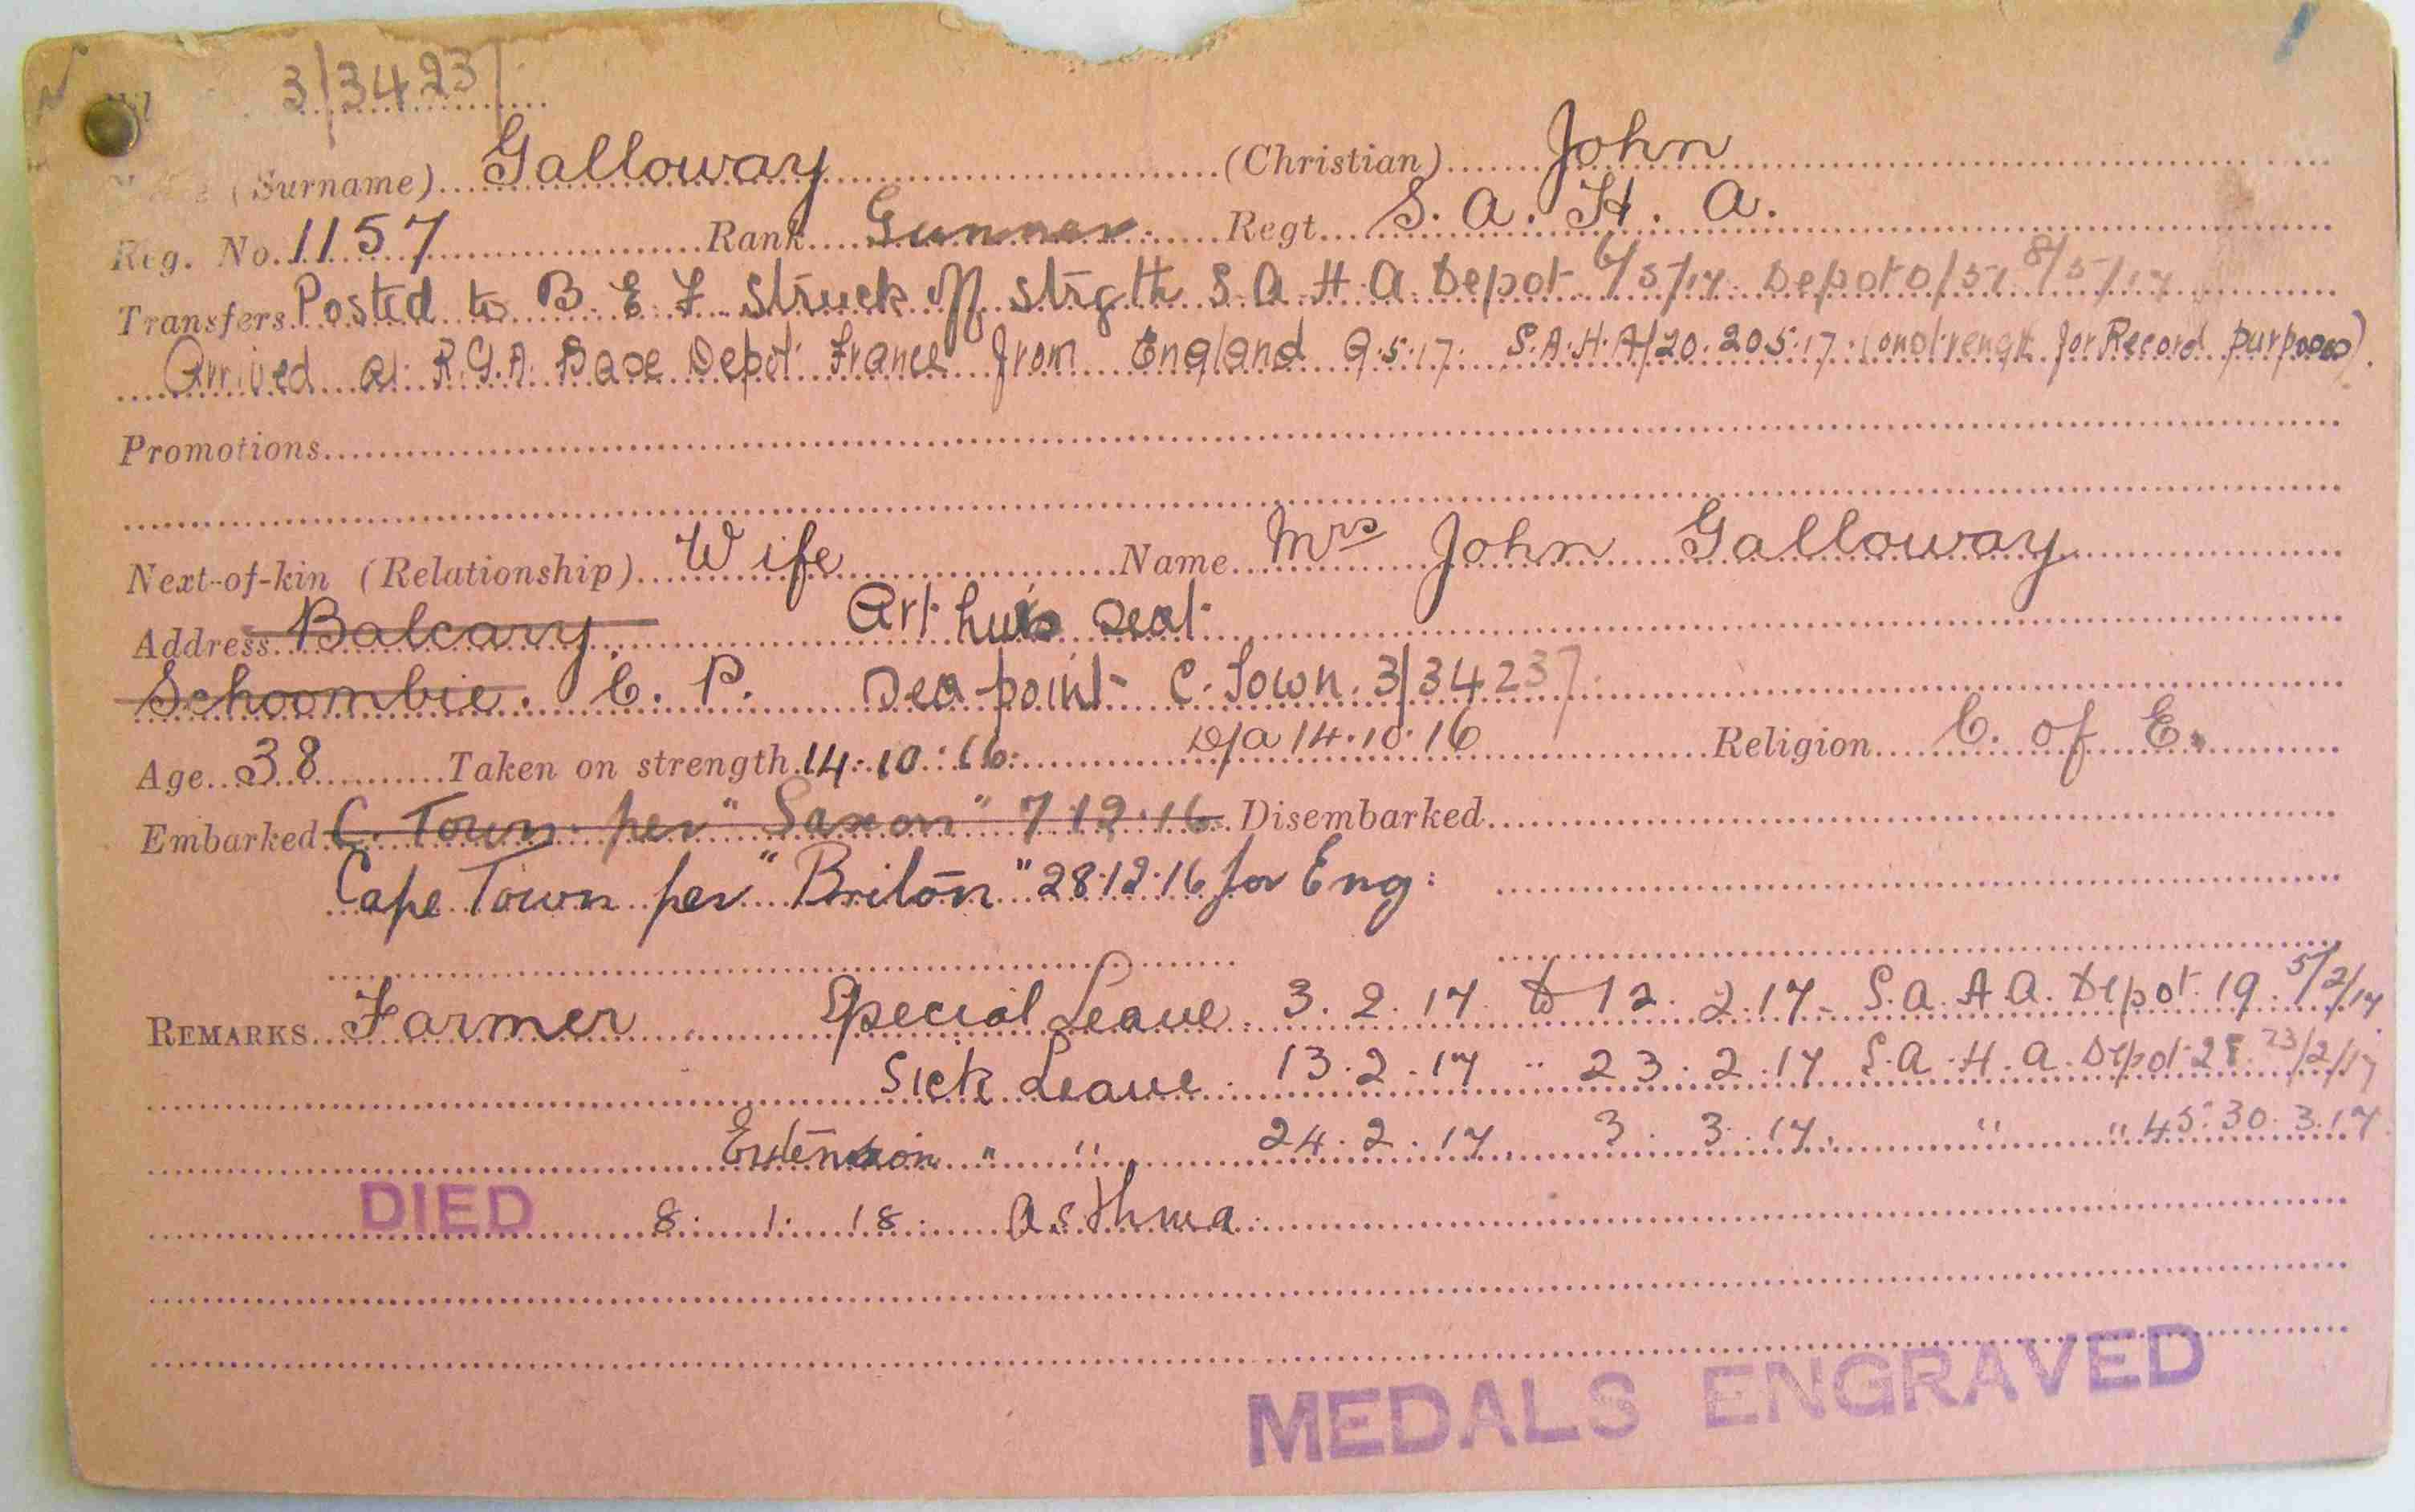 3/3423/
(Surname) Galloway (Christian) John
Reg. No. 1157 Rank Gunner Regt. S. A. H. A.
Transfers Posted to B. E. F. struck off strgth S. A. H. A. Depot 6/5/17. Depot 0/57 8/5/17
Arrived at R.G.A. Base Depot France from England 9.5.17. S.A.H.A/20. 20.5.17. (on strength for Record purposes).
Promotions
Next-of-kin (Relationship) Wife Name Mrs John Galloway
Address Balcary. Arthurs Seat
Schoombie. C. P. Sea point C. Town. 3/34237
Age 38 Taken on strength 14.10.16. D/a 14.10.16 Religion C. of E.
Embarked C. Town per "Saxon" 7.12.16 Disembarked
Cape Town per "Briton" 28.12.16 for Eng:
REMARKS Farmer Special Leave 3. 2. 17 to 12. 2. 17 - S. A. H. A. Depot. 19. 5/2/17
Sick Leave 13. 2. 17 " 23. 2. 17 S. A. H. A. Depot 23/2/17
Extension " " 24. 2. 17. 3. 3. 17. " " 45. 30. 3. 17.
DIED 8. 1. 18. asthma
MEDALS ENGRAVED